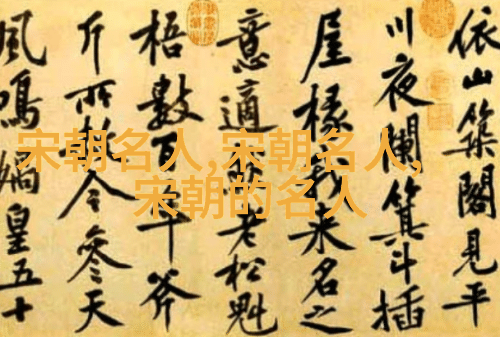 依山築閣見平
川夜闌箕斗插
屋椽我來名之
意適然老松魁
梧數百年斧
斤所赦今參天
風鳴媧皇五十
宋朝名人,宋朝名人,
宋朝的名人